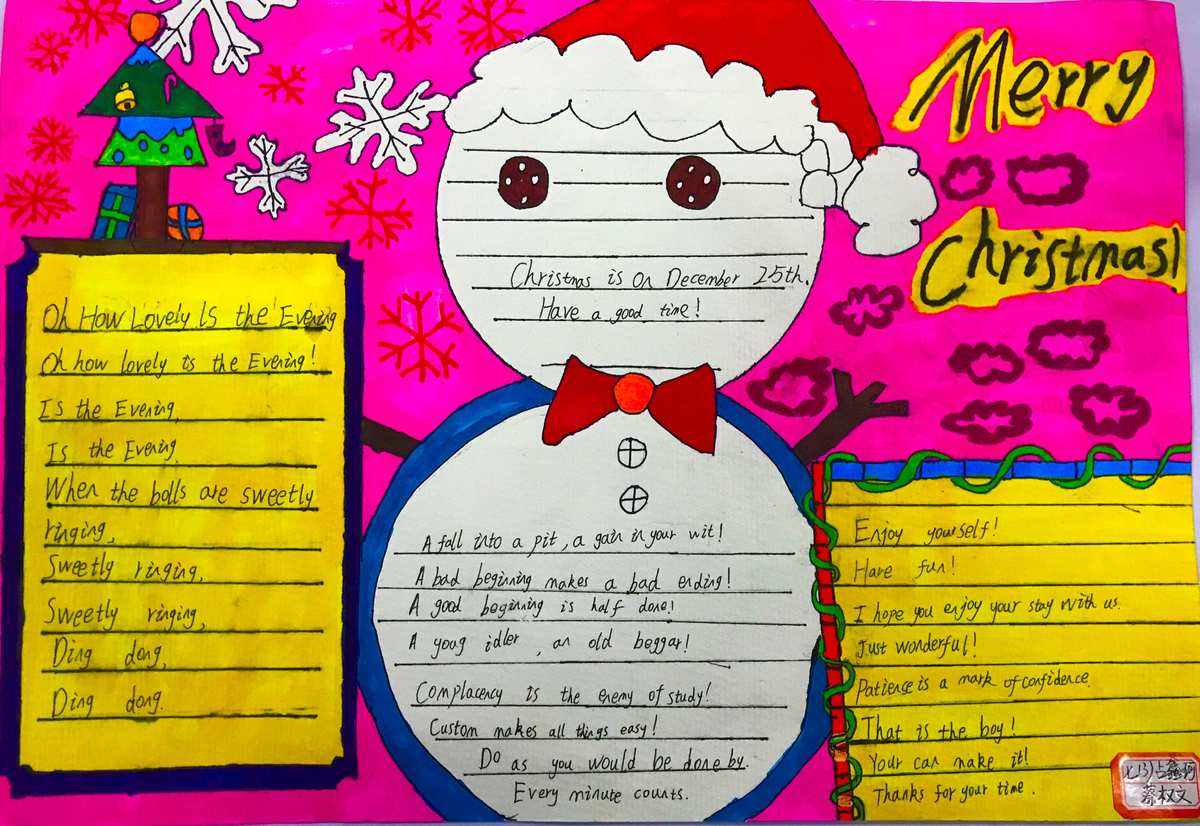 Merry
Christmas!
Christmas is on December 25th.
Have a good time!
Oh How Lovely Is the Evening
Oh how lovely is the Evening!
Is the Evening,
Is the Evening.
When the bolls are sweetly
ringing,
Sweetly ringing,
Sweetly ringing,
Ding dong,
Ding dong.
A fall into a pit, a gain in your wit!
A bad beginning makes a bad ending!
A good beginning is half done!
A youg idler, an old beggar!
Complacency is the enemy of study!
Custom makes all things easy!
Do as you would be done by.
Every minute counts.
Enjoy yourself!
Have fun!
I hope you enjoy your stay with us.
Just wonderful!
Patience is a mark of confidence.
That is the boy!
Your can make it!
Thanks for your time.
蔡权文